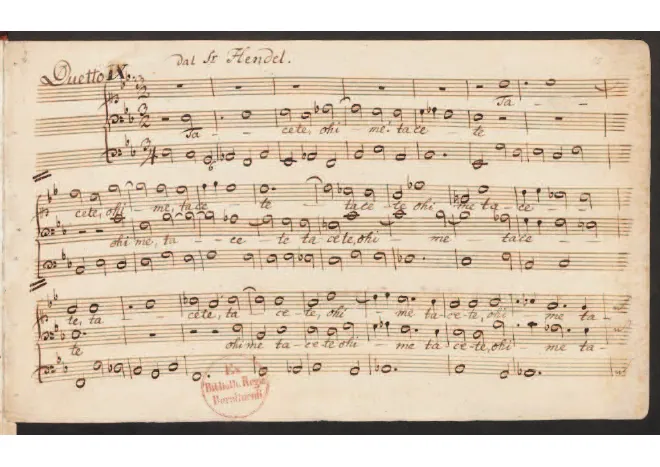 Duetto IX. dal Sr Hendel.
Ta-
Ta- cete, ohi- mè! tace te
cete, ohi- me, tace te tace- te ohi me ta- ce-
ohi me, ta- ce- te ta cete, ohi- me- tace
te, ta cete, ta ce- te, ohi- me ta- ce- te, ohi me ta-
te ohi me ta- ce- te ohi- me ta ce- te, ohi- me ta-
Ex
Biblioth. Regia
Berolinensi